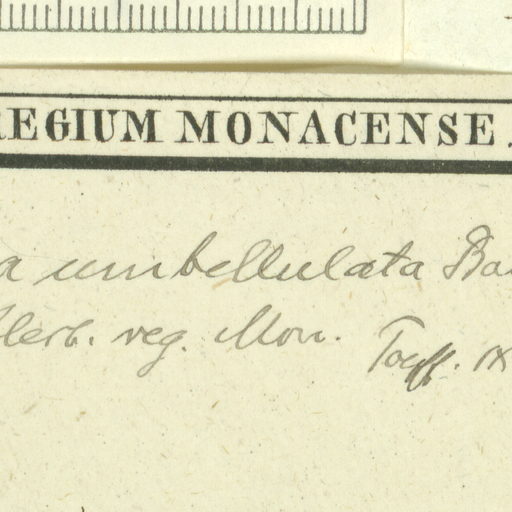 REGIUM MONACENSE.
a umbellulata Ba
Herb. reg. Mon.
Toepff. IX